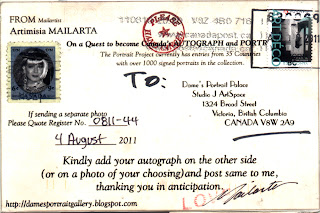 FROM Mailartis
Artimisia MAILARTA
On a Quest to become Canada's AUTOGRAPH and PORTR
The Portrait Project currently has entries from 35 Countries
with over 1000 signed portraits in the collection.
TO:
Dame's Portrait Palace
Studio J ArtSpace
1324 Broad Street
Victoria, British Columbia
CANADA V8W 2A9
If sending a separate photo
Please Quote Register No. 0811-44
4 August 2011
Kindly add your autograph on the other side
(or on a photo of your choosing) and post same to me,
thanking you in anticipation.
Mailarta
http://damesportraitgallery.blogspot.com